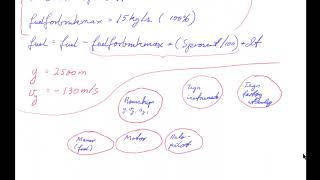 fuelforbrukmax = 15 kg/s ( 100%)
fuel = fuel - fuelforbrukmax * (Sprosent/100) * dt
y = 2500 m
vy = - 130 m/s
Romskip
y, vy,
Tegn
instrument
Tegn
Måner
(fuel)
Motor
Auto-
pilot